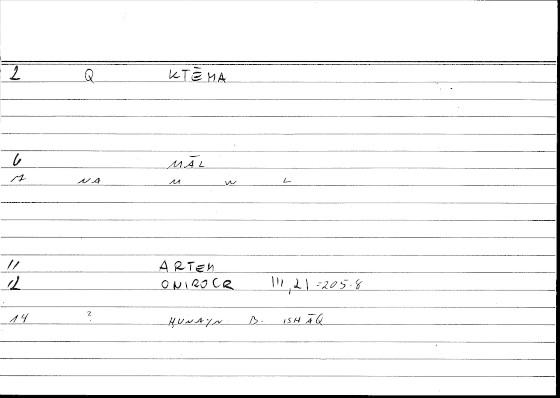 2 Q KTĒMA
6 MĀL
7 NA M W L
11 ARTEM
12 ONIROCR III, 21 = 205.8
14 ? ḤUNAYN B. ISḤĀQ